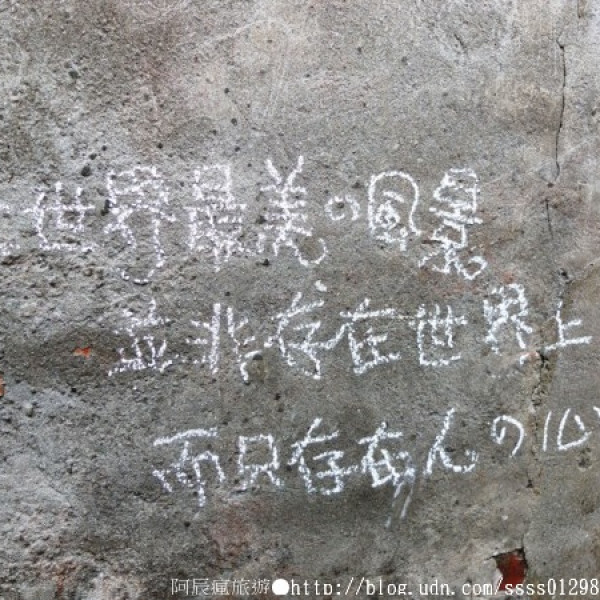 世界最美の風景
並非存在世界上
而只存在人の心
阿辰瘋旅遊●http://blog.udn.com/ssss01298